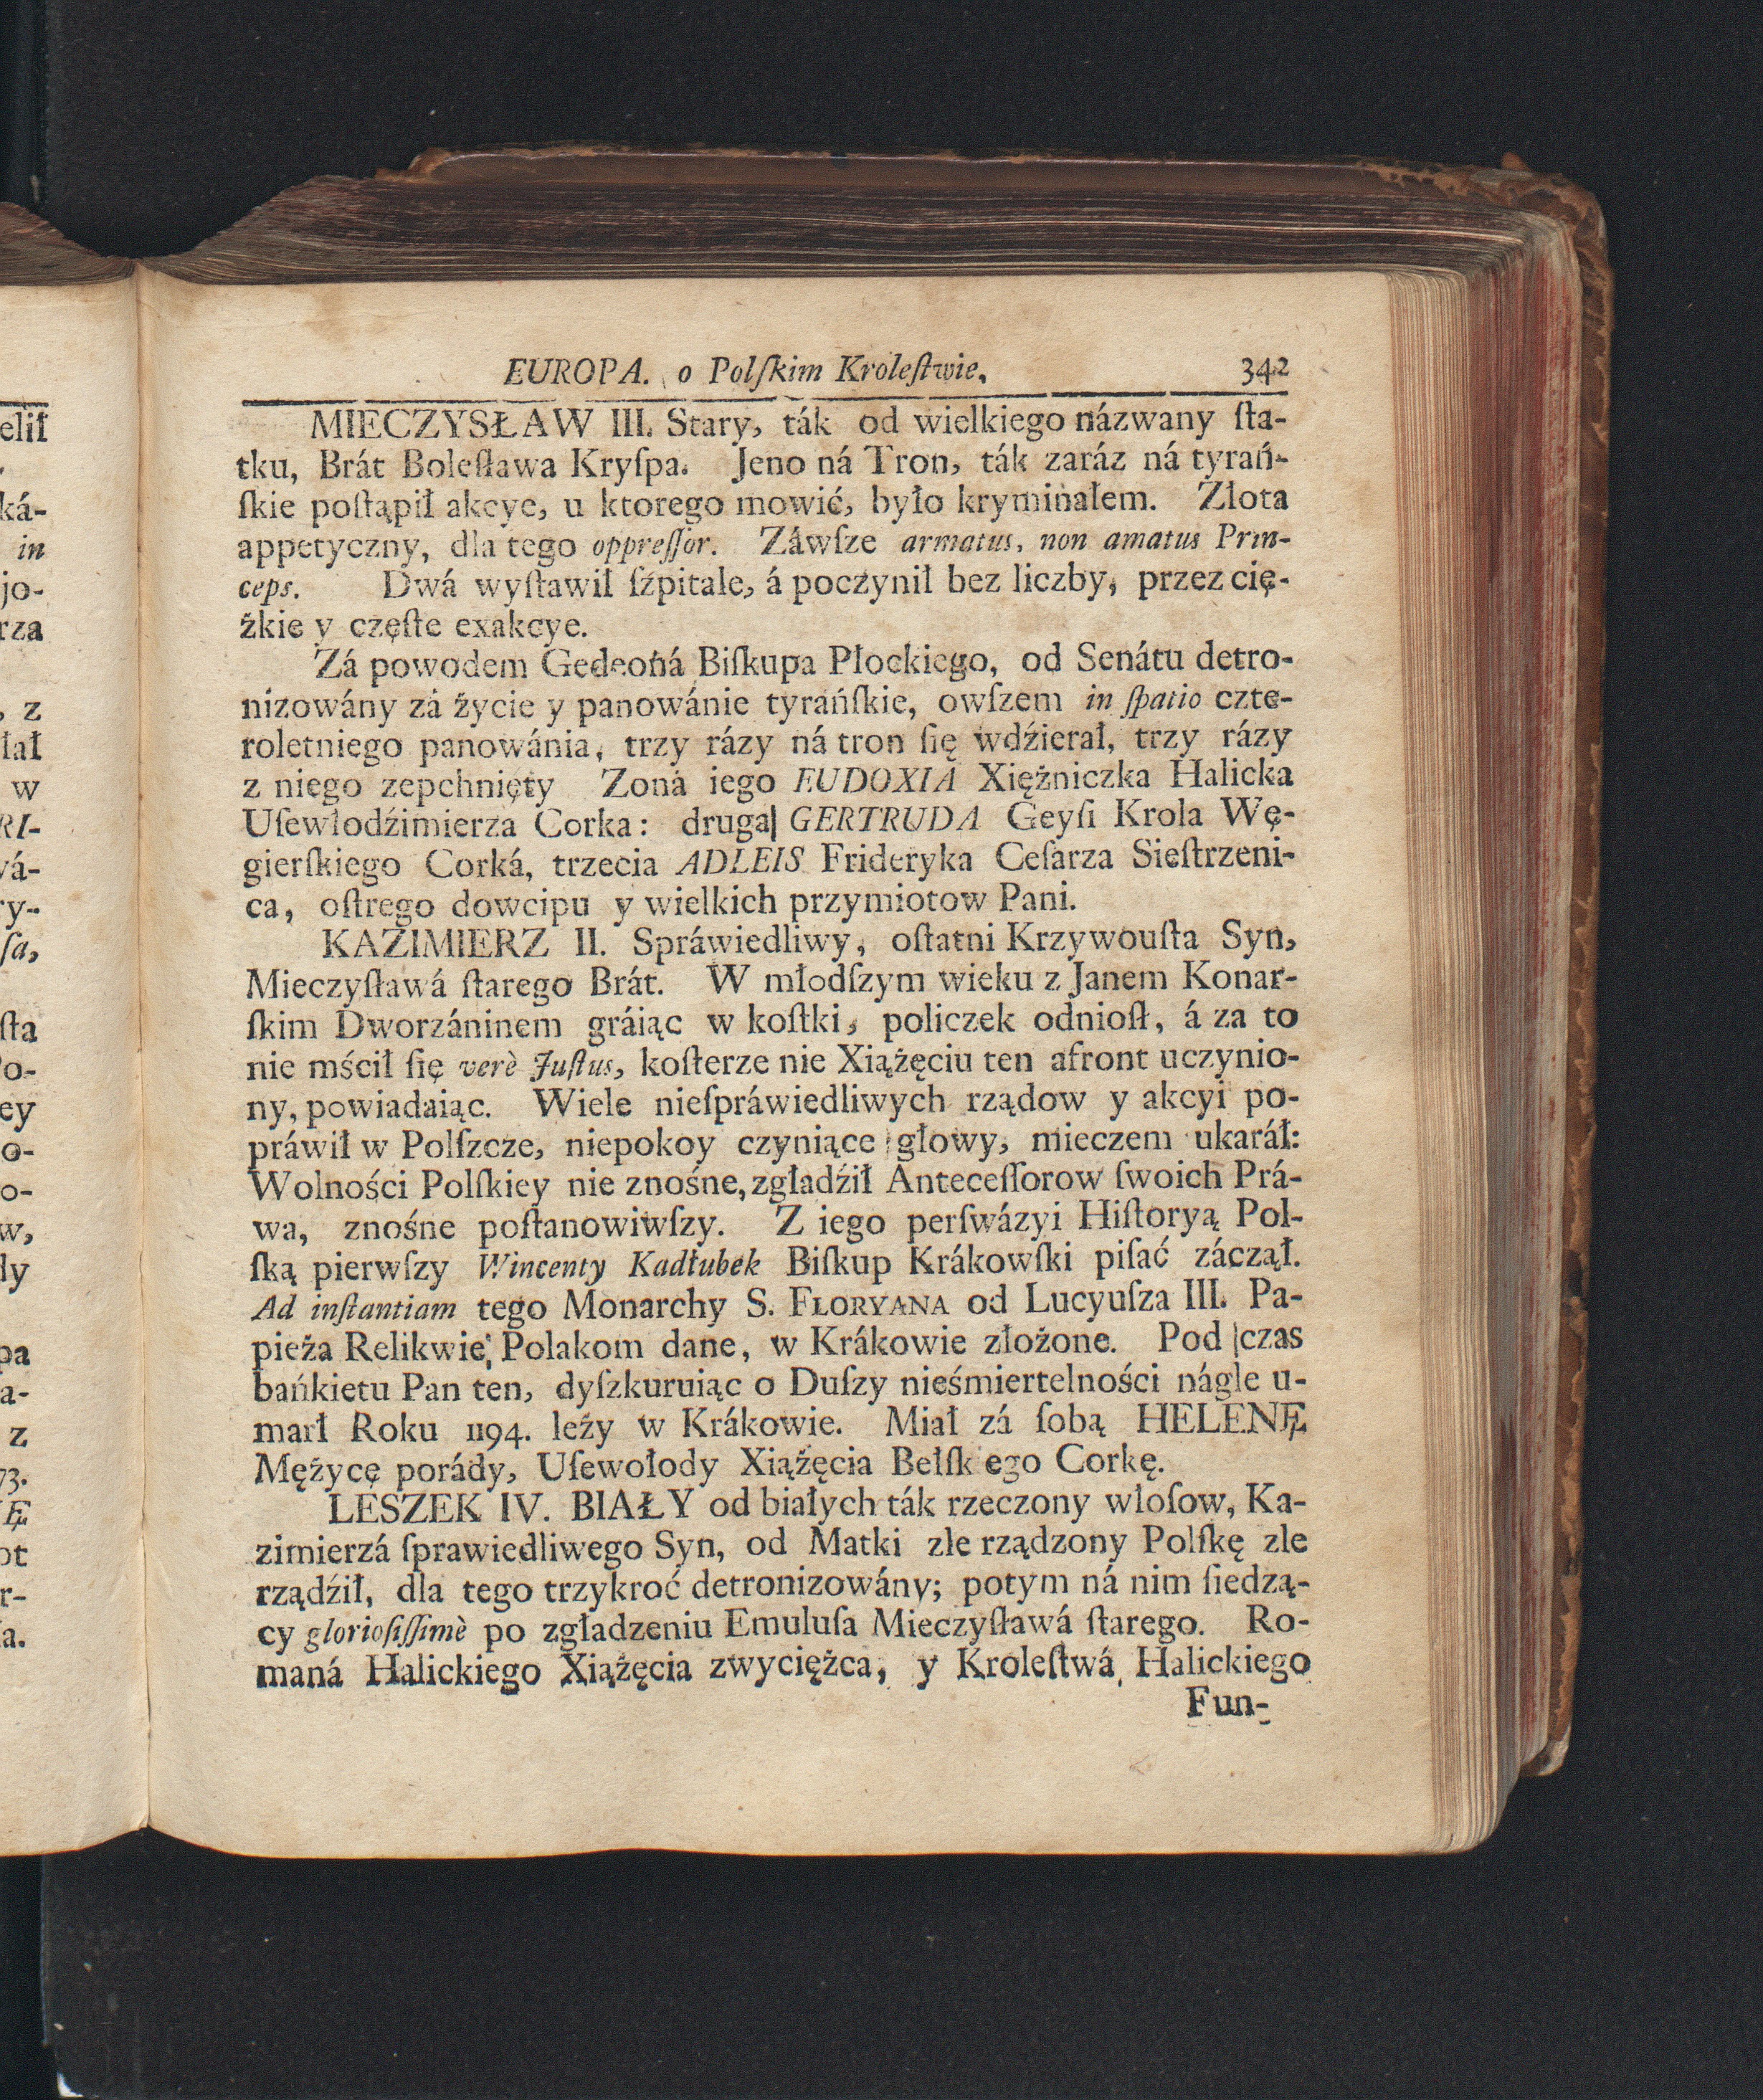 EUROPA. o Polſkim Kroleſtwie. 342
MIECZYSŁAW III. Stary, ták od wielkiego názwany ſta-
tku, Brát Boleſława Kryſpa. Jeno ná Tron, ták zaráz ná tyrań-
ſkie poſtąpił akcye, u ktorego mowić, było kryminałem. Złota
appetyczny, dla tego oppreſſor. Záwſze armatus, non amatus Prin-
ceps. Dwá wyſtawił ſźpitale, á poczynił bez liczby, przez cię-
żkie y częſte exakcye.
Zá powodem Gedeoná Biſkupa Płockiego, od Senátu detro-
nizowány zá życie y panowánie tyrańſkie, owſzem in ſpatio czte-
roletniego panowánia, trzy rázy ná tron ſię wdźierał, trzy rázy
z niego zepchnięty Zoná iego EUDOXIA Xiężniczka Halicka
Uſewłodźimierza Corka: druga GERTRUDA Geyſi Krola Wę-
gierſkiego Corká, trzecia ADLEIS Frideryka Ceſarza Sieſtrzeni-
ca, oſtrego dowcipu y wielkich przymiotow Pani.
KAZIMIERZ II. Spráwiedliwy, oſtatni Krzywouſta Syn,
Mieczyſławá ſtarego Brát. W młodſzym wieku z Janem Konar-
ſkim Dworzáninem gráiąc w koſtki, policzek odnioſł, á za to
nie mścił ſię verè Juſtus, koſterze nie Xiążęciu ten afront uczynio-
ny, powiadaiąc. Wiele nieſpráwiedliwych rządow y akcyi po-
práwił w Polſzcze, niepokoy czyniące głowy, mieczem ukaráł:
Wolności Polſkiey nie znośne, zgładźił Anteceſſorow ſwoich Prá-
wa, znośne poſtanowiwſzy. Z iego perſwázyi Hiſtoryą Pol-
ſką pierwſzy Wincenty Kadłubek Biſkup Krákowſki piſać záczął.
Ad inſtantiam tego Monarchy S. FLORYANA od Lucyuſza III. Pa-
pieża Relikwie, Polakom dane, w Krákowie złożone. Pod czas
bańkietu Pan ten, dyſzkuruiąc o Duſzy nieśmiertelności nágle u-
marł Roku 1194. leży w Krákowie. Miał zá ſobą HELENĘ
Mężycę porády, Uſewołody Xiążęcia Bełſk ego Corkę.
LESZEK IV. BIAŁY od białych ták rzeczony włoſow, Ka-
zimierzá ſprawiedliwego Syn, od Matki zle rządzony Polſkę zle
rządźił, dla tego trzykroć detronizowány; potym ná nim ſiedzą-
cy glorioſiſſimè po zgładzeniu Emuluſa Mieczyſławá ſtarego. Ro-
maná Halickiego Xiążęcia zwyciężca, y Kroleſtwá Halickiego
Fun-